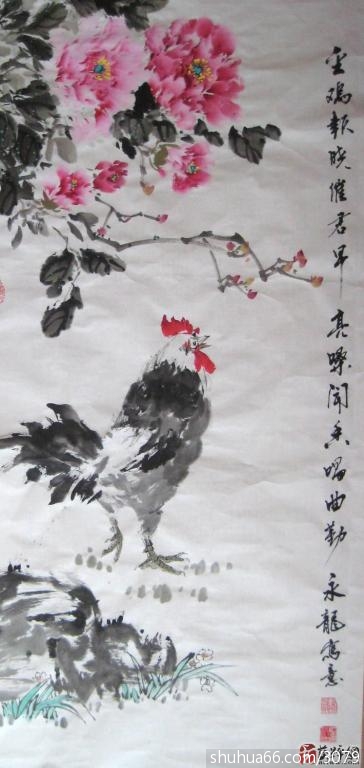 金鸡报晓催君早亮嗓闻香唱曲勤 永龍寫意
shuhua66.com/3079